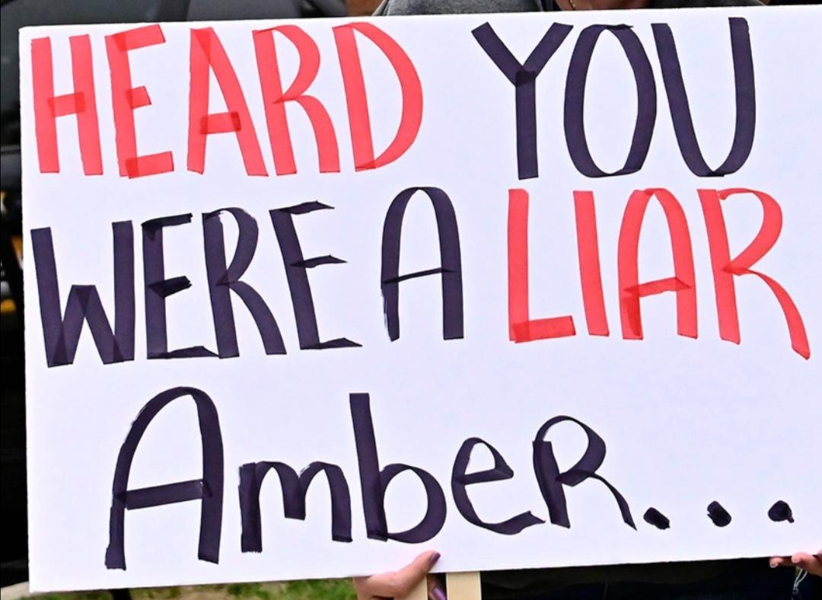 HEARD YOU
WERE A LIAR
AmbeR...